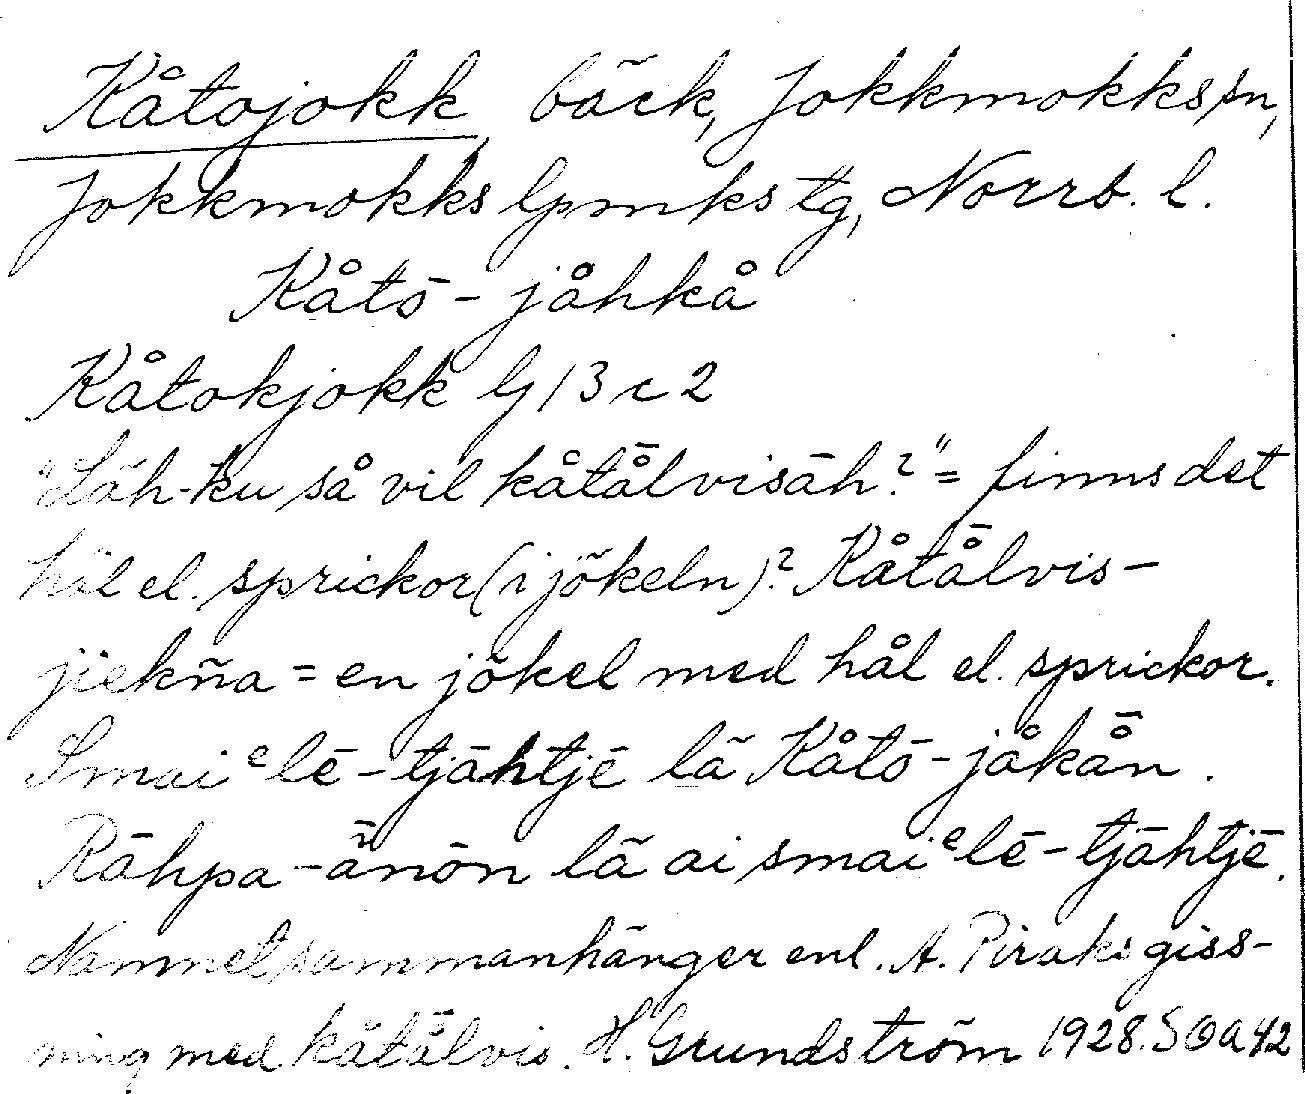 Kåtojokk, bäck, Jokkmokks sn,
Jokkmokks lpmks tg, Norrb. l.
Kåtō-jåhkå
Kåtokjokk G 13 c 2
"Läh-ku så vil kåtå̄lvisāh?" = finns det
hål el. sprickor (i jökeln)? Kåtå̄lvis-
jiekña = en jökel med hål el. sprickor.
Smaiᵉlē-tjāhtjē lā Kåtō-jåkå̄n.
Rāhpa-ǟnōn lā ai smaiᵉlē-tjāhtjē.
Namnet sammanhänger enl. A. Piraks giss-
ning med kåtå̄lvis. H. Grundström 1928. SOA 42